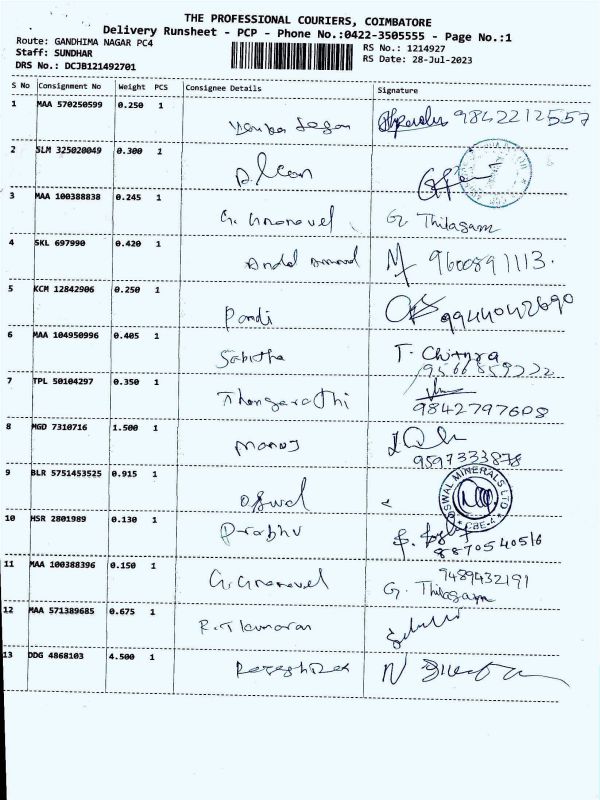 THE PROFESSIONAL COURIERS, COIMBATORE
Delivery Runsheet - PCP - Phone No.:0422-3505555 - Page No.:1
Route: GANDHIMA NAGAR PC4 RS No.: 1214927
Staff: SUNDHAR RS Date: 28-Jul-2023
DRS No.: DCJB121492701
S No Consignment No Weight PCS Consignee Details Signature
1 MAA 570250599 0.250 1 9842212557
2 SLM 325020049 0.300 1
3 MAA 100388838 0.245 1 G. Gnanavel G. Thilagam
4 SKL 697990 0.420 1 9600891113.
5 KCM 12842906 0.250 1 Pandi 9944042690
6 MAA 104950996 0.405 1 Sabitha T. Chitra
9566859222
7 TPL 50104297 0.350 1 Thangarathi
9842797608
8 MGD 7310716 1.500 1 Manoj
9597333878
9 BLR 5751453525 0.915 1 Oswal OSWAL MINERALS LTD CBE-4
10 HSR 2801989 0.130 1 Prabhu
8870540516
11 MAA 100388396 0.150 1 G. Gnanavel 9489432191
G. Thilagam
12 MAA 571389685 0.675 1 R. T kumaran
13 DDG 4868103 4.500 1